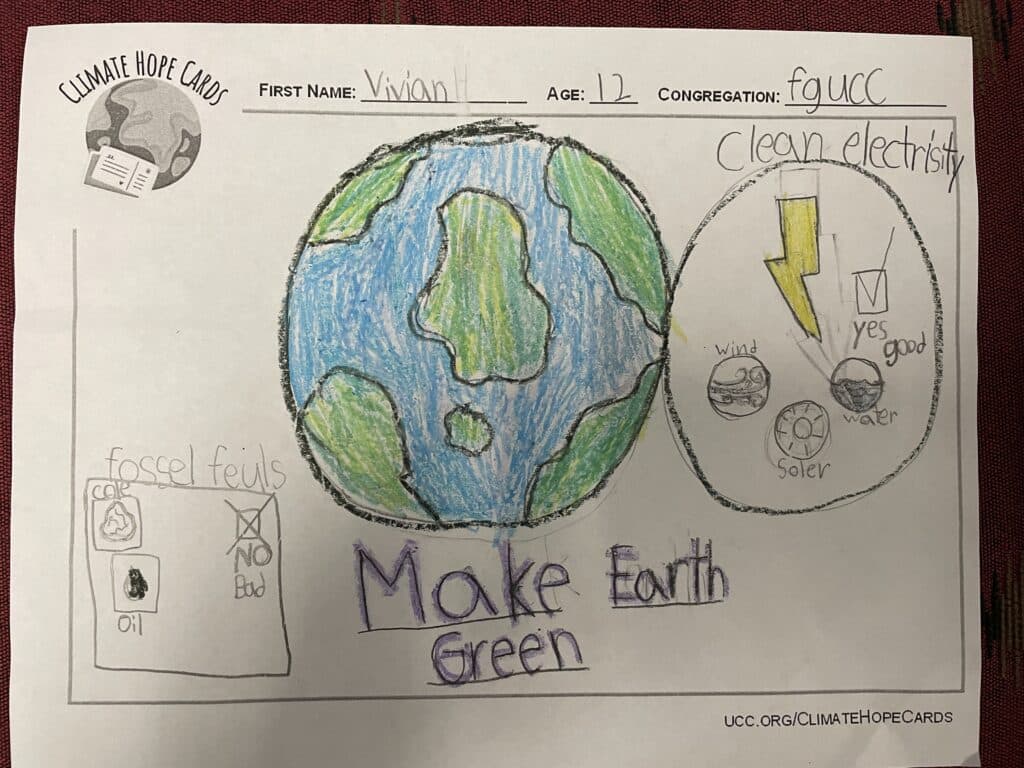 CLIMATE HOPE CARDS
FIRST NAME: Vivian H AGE: 12 CONGREGATION: fgucc
clean electrisity
yes
good
wind
water
Soler
fossel feiuls
cole
NO
Bad
Oil
Make Earth
Green
UCC.ORG/CLIMATEHOPECARDS